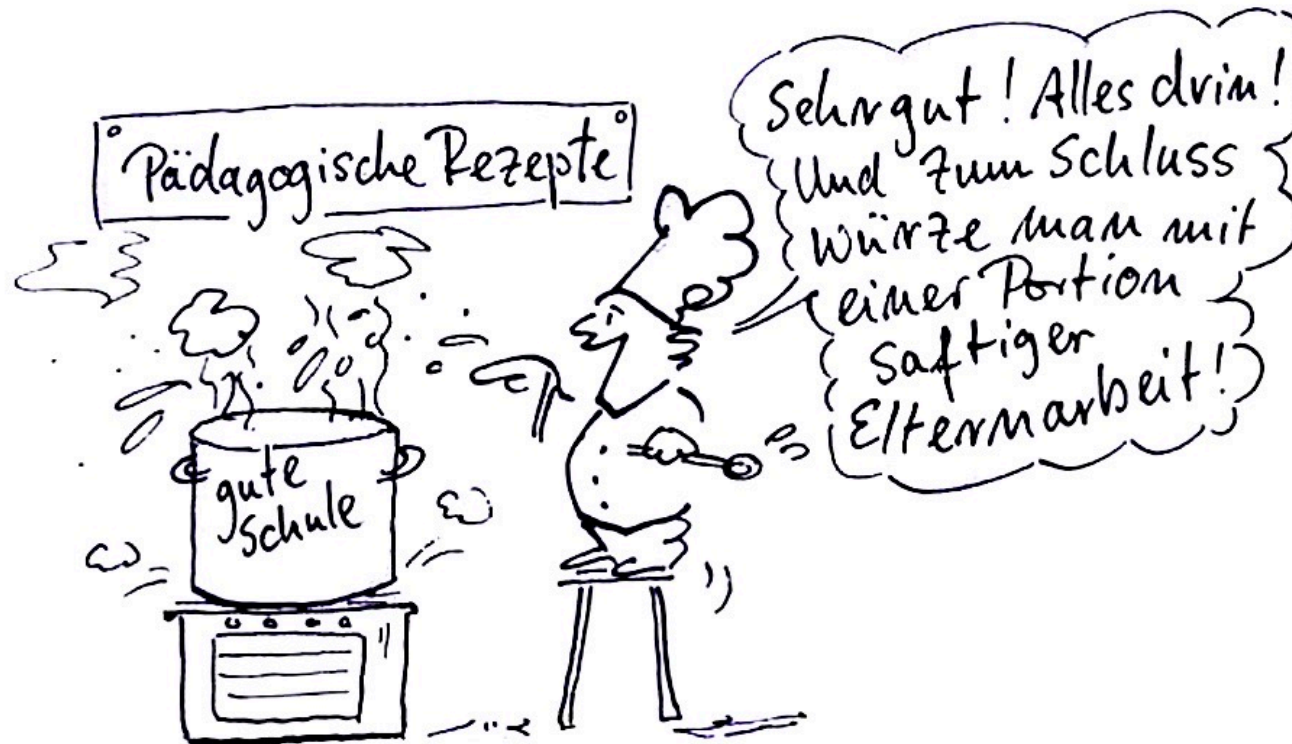 Pädagogische Rezepte
Sehr gut! Alles drin!
Und zum Schluss
würze man mit
einer Portion
saftiger
Elternarbeit!
gute
Schule